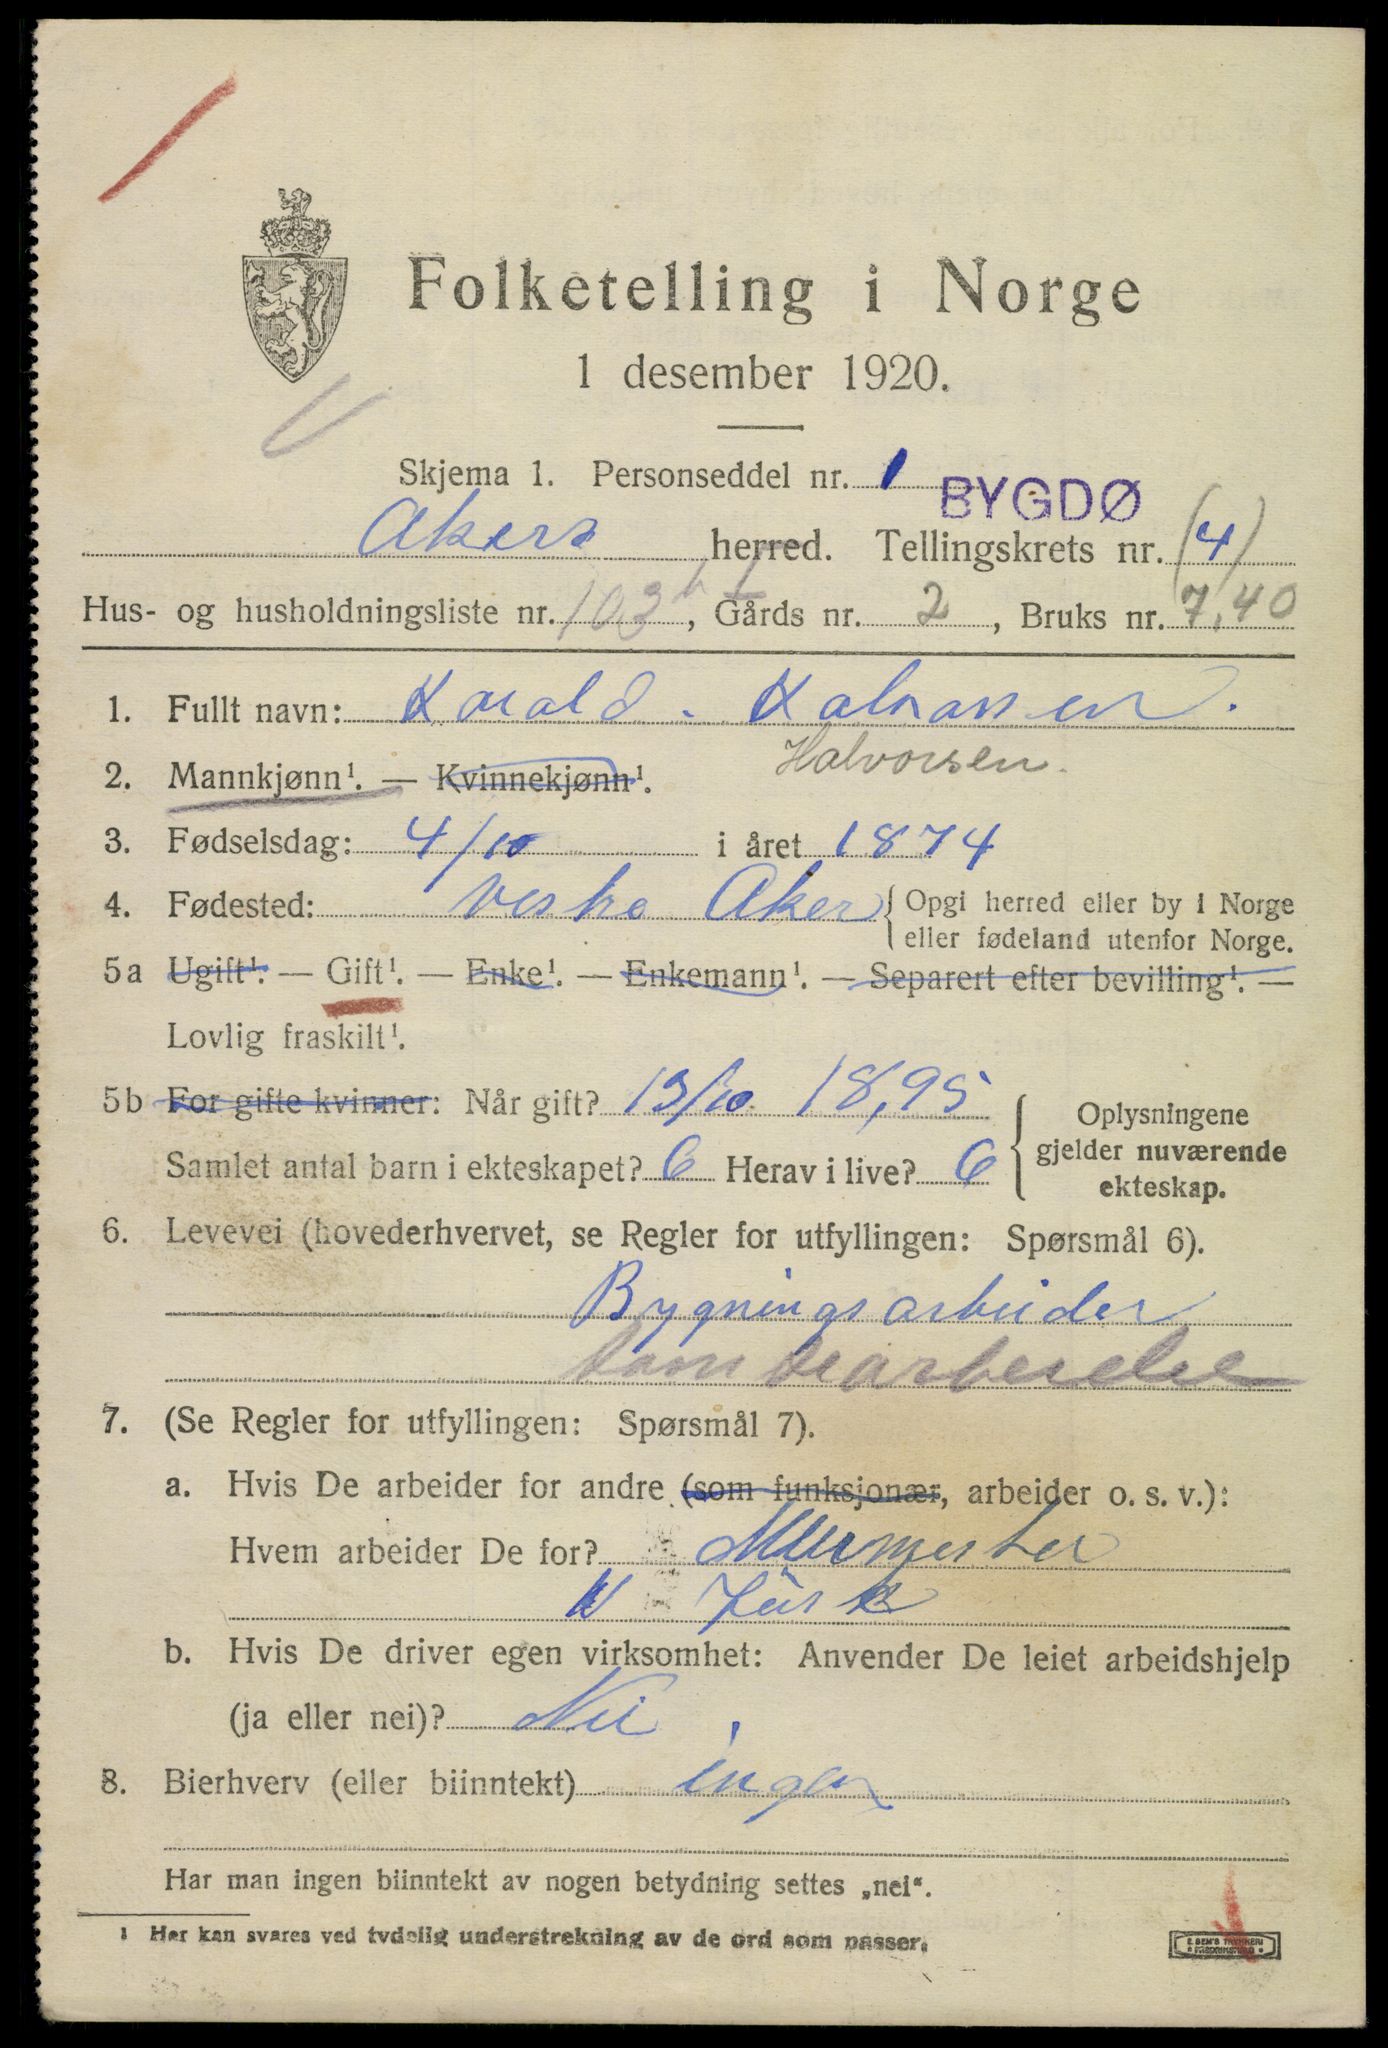 Folketelling i Norge
1 desember 1920.
Skjema 1. Personseddel nr. 1
BYGDØ
Akers herred. Tellingskrets nr. (4)
Hus- og husholdningsliste nr. 103, Gårds nr. 2, Bruks nr. 7,40
1. Fullt navn: Harald Halvorsen.
Halvorsen.
2. Mannkjønn¹. — Kvinnekjønn¹.
3. Fødselsdag: 4/10 i året 1874
4. Fødested: Vestre Aker { Opgi herred eller by i Norge
eller fødeland utenfor Norge.
5a Ugift¹. — Gift¹. — Enke¹. — Enkemann¹. — Separert efter bevilling¹. —
Lovlig fraskilt¹.
5b For gifte kvinner: Når gift? 13/10 18,95
Samlet antal barn i ekteskapet? 6 Herav i live? 6
{ Oplysningene
gjelder nuværende
ekteskap.
6. Levevei (hovederhvervet, se Regler for utfyllingen: Spørsmål 6).
Bygningsarbeider
7. (Se Regler for utfyllingen: Spørsmål 7).
a. Hvis De arbeider for andre (som funksjonær, arbeider o. s. v.):
Hvem arbeider De for? Murmester
b. Hvis De driver egen virksomhet: Anvender De leiet arbeidshjelp
(ja eller nei)? Nei
8. Bierhverv (eller biinntekt) ingen
Har man ingen biinntekt av nogen betydning settes „nei“.
1 Her kan svares ved tydelig understrekning av de ord som passer.